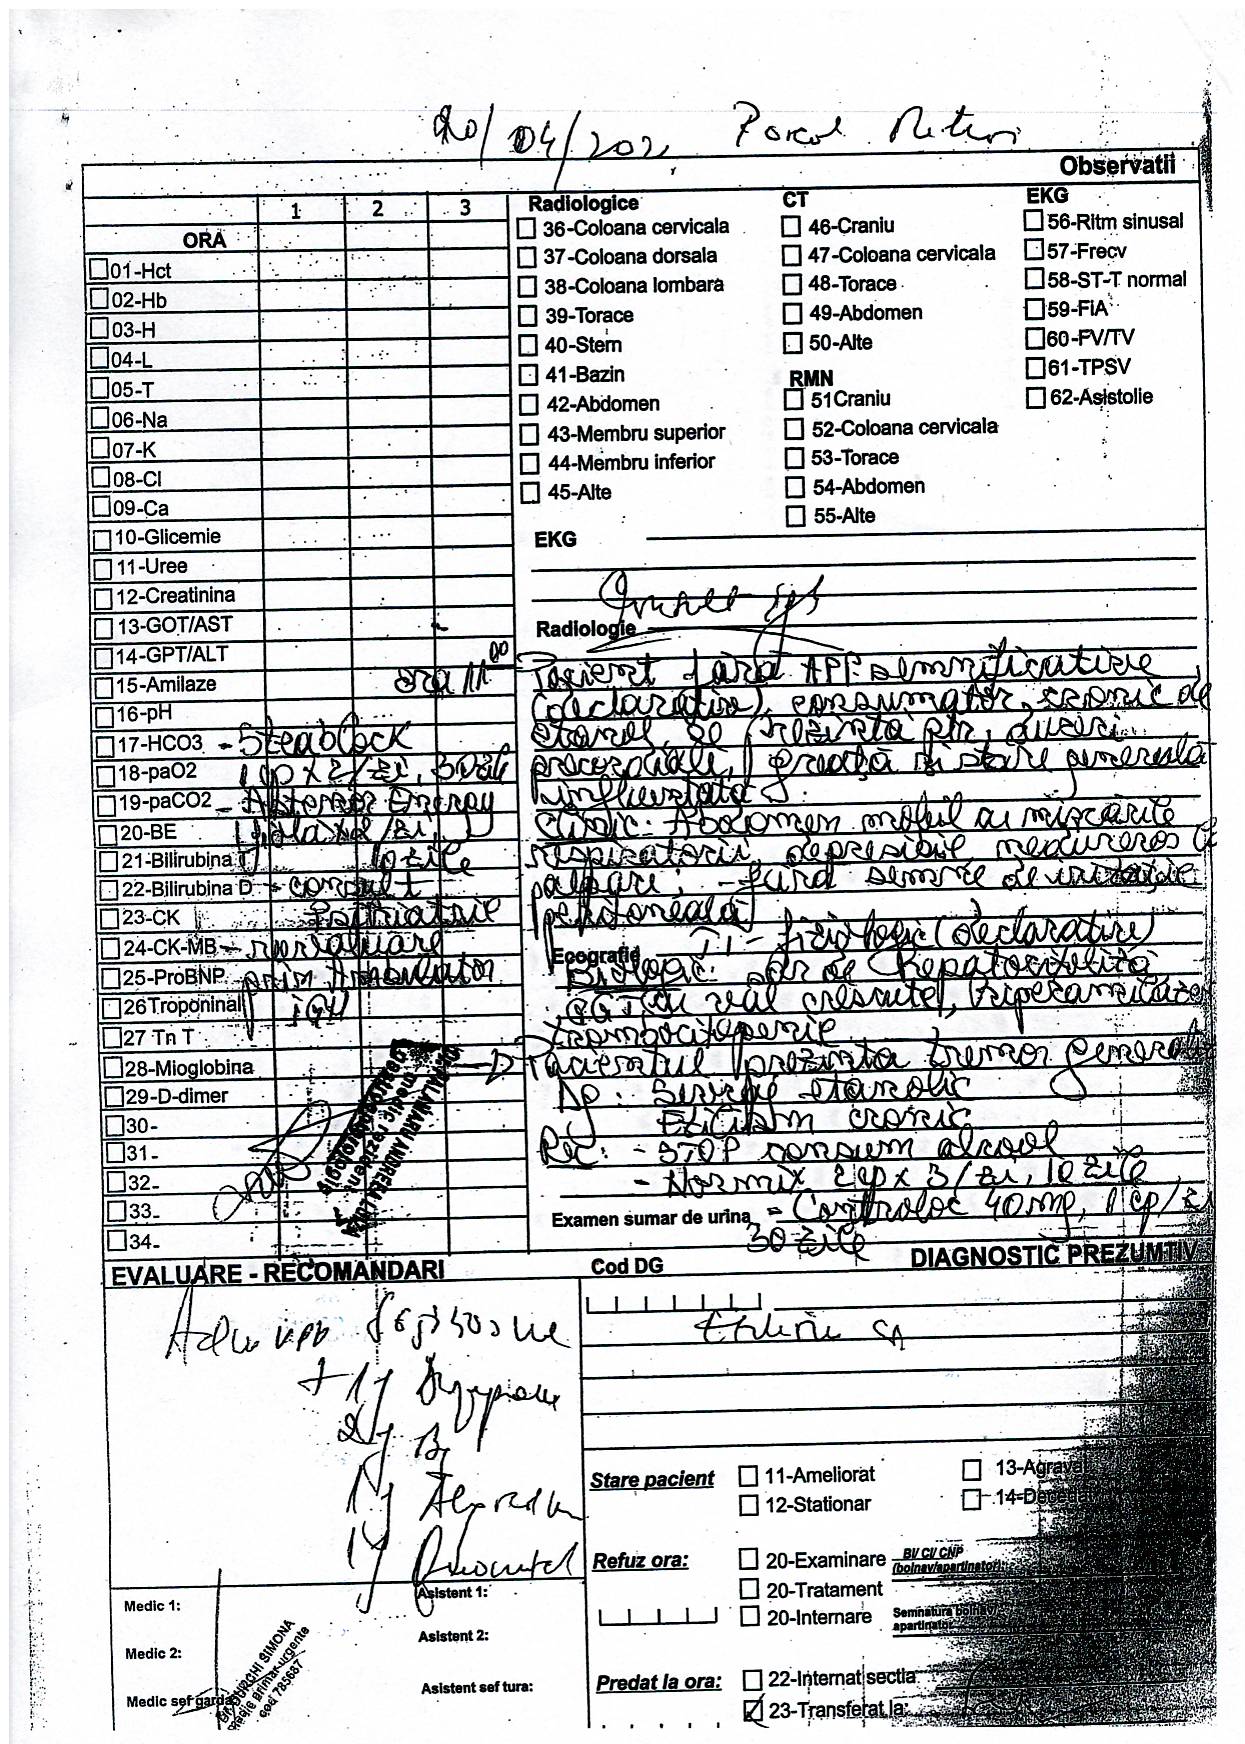 20/04/202
Observatii
1 2 3
ORA
01-Hct
02-Hb
03-H
04-L
05-T
06-Na
07-K
08-Cl
09-Ca
10-Glicemie
11-Uree
12-Creatinina
13-GOT/AST
14-GPT/ALT
15-Amilaze
16-pH
17-HCO3
18-paO2
19-paCO2
20-BE
21-Bilirubina
22-Bilirubina D
23-CK
24-CK-MB
25-ProBNP
26Troponinal
27 Tn T
28-Mioglobina
29-D-dimer
30-
31-
32-
33-
34-
Radiologice
36-Coloana cervicala
37-Coloana dorsala
38-Coloana lombara
39-Torace
40-Stern
41-Bazin
42-Abdomen
43-Membru superior
44-Membru inferior
45-Alte
CT
46-Craniu
47-Coloana cervicala
48-Torace
49-Abdomen
50-Alte
RMN
51Craniu
52-Coloana cervicala
53-Torace
54-Abdomen
55-Alte
EKG
56-Ritm sinusal
57-Frecv
58-ST-T normal
59-FiA
60-FV/TV
61-TPSV
62-Asistolie
EKG
Radiologie
ora 11 00
Pacient fără APP semnificative
(declarativ), consumator cronic de
etanol, se prezintă ptr. dureri
precordiale, greață și stare generală
influențată.
Clinic: Abdomen mobil cu mișcările
respiratorii, depresibil, nedureros la
palpare; - fără semne de iritație
peritoneală
Ecografie
TI - fiziologic (declarativ)
Biologic: sdr de hepatocitoliză,
GGT cu val crescute, hiperamilazemie
trombocitopenie
Pacientul prezintă tremor generalizat
Dg: Sevraj etanolic
Etilism cronic
Rec: - STOP consum alcool
- Normix 2 cp x 3/zi, 10 zile
Examen sumar de urina - Controloc 40 mg, 1 cp/zi
30 zile
- Steablock
1 cp x 2/zi, 30 zile
- Energy
1 fiola x1/zi,
10 zile
- consult
Psihiatrie
- reevaluare
prin Ambulator
medic rezident
EVALUARE - RECOMANDARI
Cod DG
DIAGNOSTIC PREZUMTIV
Stare pacient
11-Ameliorat
12-Stationar
13-Agravat
14-Decedat
Refuz ora:
20-Examinare
BI/ CI/ CNP
(bolnav/apartinator)
20-Tratament
20-Internare
Semnatura bolnav/
apartinator
Predat la ora:
22-Internat sectia
23-Transferat la:
Medic 1:
Medic 2:
Medic sef garda:
Asistent 1:
Asistent 2:
Asistent sef tura:
SIMONA
cod 785687